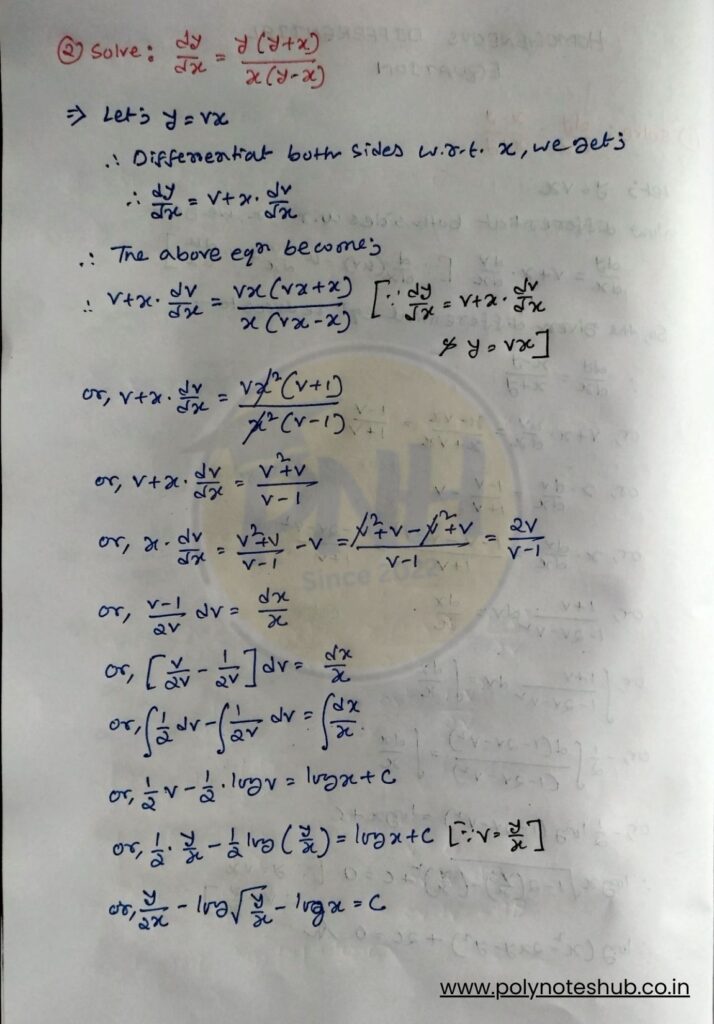 ② Solve: dy/dx = y(y+x)/x(y-x)
⇒ Let; y = vx
∴ Differential both sides w.r.t. x, we get;
∴ dy/dx = v+x· dv/dx
∴ The above eqn become;
∴ v+x· dv/dx = vx(vx+x)/x(vx-x) [∵ dy/dx = v+x· dv/dx
& y = vx]
or, v+x· dv/dx = vx²(v+1)/x²(v-1)
or, v+x· dv/dx = v²+v/v-1
or, x· dv/dx = v²+v/v-1 - v = v²+v-v²+v/v-1 = 2v/v-1
or, v-1/2v dv = dx/x
or, [v/2v - 1/2v] dv = dx/x
or, ∫1/2 dv - ∫1/2v dv = ∫dx/x
or, 1/2 v - 1/2· log v = log x + C
or, 1/2· y/x - 1/2 log (y/x) = log x + C [∵ v = y/x]
or, y/2x - log √y/x - log x = C
PNH
Since 2022
www.polynoteshub.co.in